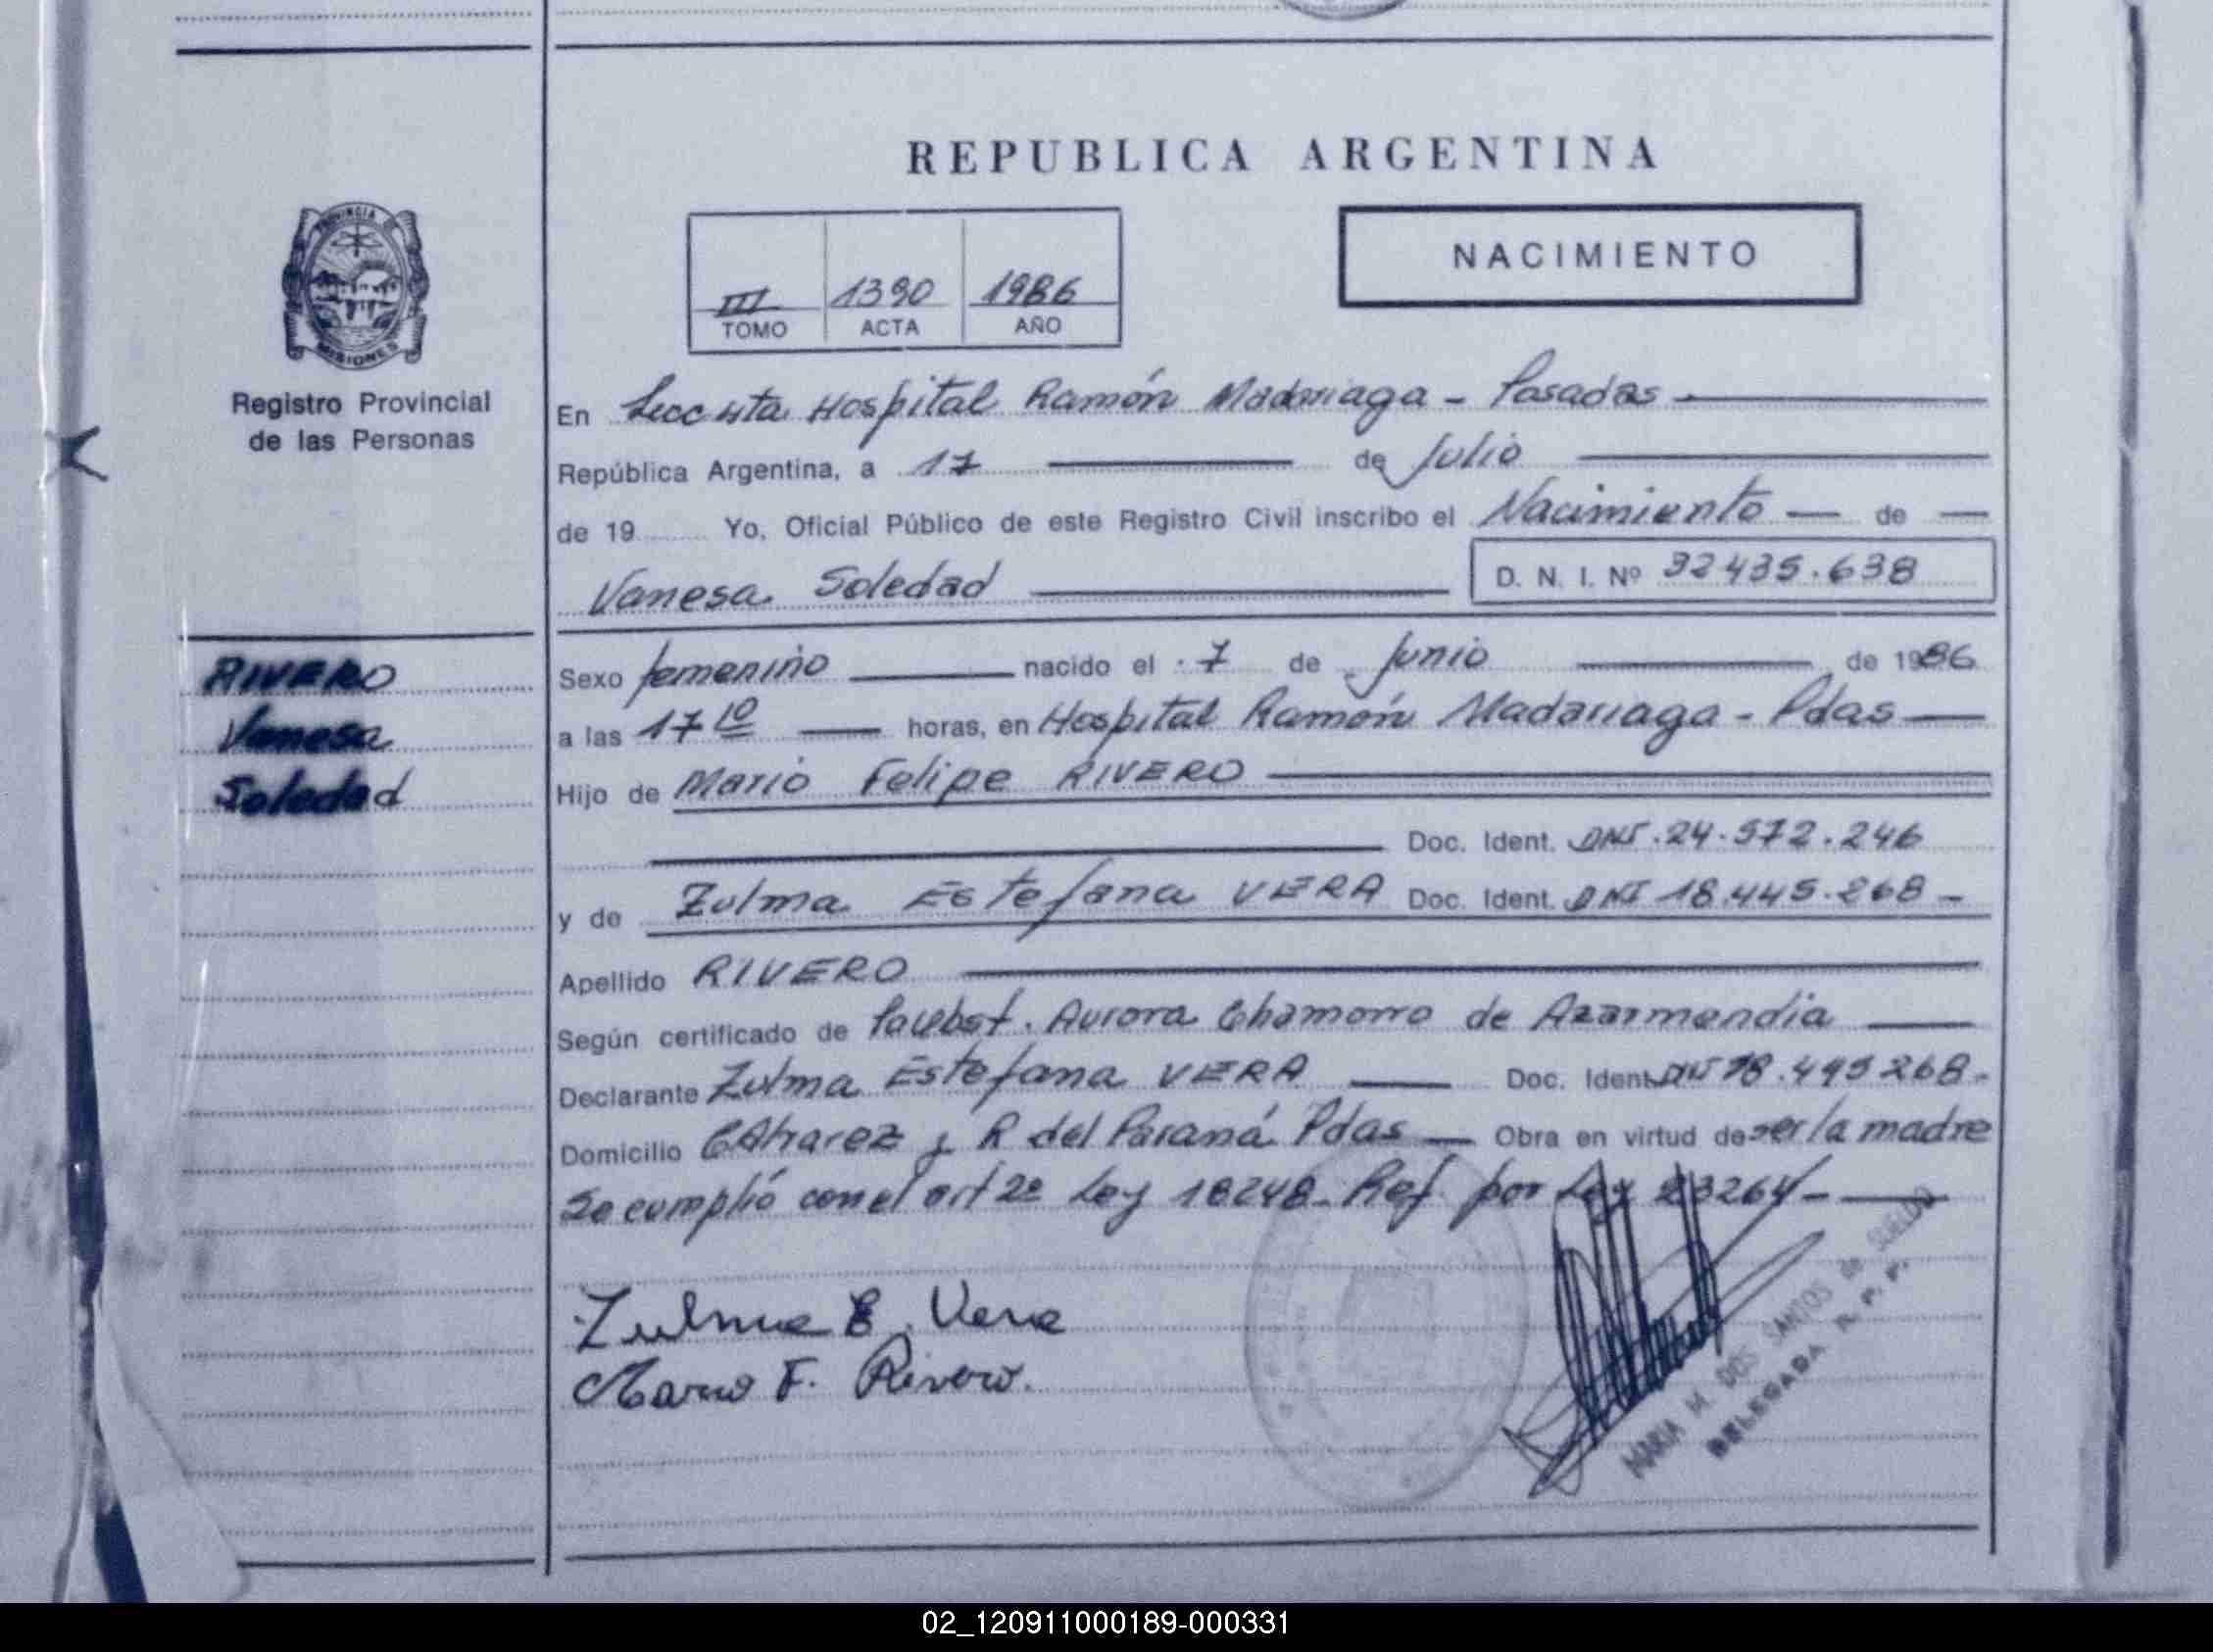 REPUBLICA ARGENTINA
PROVINCIA DE
MISIONES
Registro Provincial
de las Personas
NACIMIENTO
III 1390 1986
TOMO ACTA AÑO
En Secc 4ta Hospital Ramón Madariaga - Posadas
República Argentina, a 17 de Julio
de 19 Yo, Oficial Público de este Registro Civil inscribo el Nacimiento de
Vanesa Soledad D. N. I. Nº 32435.638
RIVERO
Vanesa
Soledad
Sexo femenino nacido el 7 de Junio de 1986
a las 17 10 horas, en Hospital Ramón Madariaga - Pdas
Hijo de Mario Felipe RIVERO
Doc. Ident. DNI. 24.572.246
y de Zulma Estefana VERA Doc. Ident. DNI 18.445.268 -
Apellido RIVERO
Según certificado de Aurora Chamorro de Azarmendia
Declarante Zulma Estefana VERA Doc. Ident. DNI 18.495268 -
Domicilio C Alvarez y R del Paraná Pdas Obra en virtud de ser la madre
Se cumplió con el art 2º Ley 18248 - Ref por Ley 23264 -
Zulma E. Vera
Mario F. Rivero.
MARIA M. DOS SANTOS de
DELEGADA R. P. P.
02_120911000189-000331